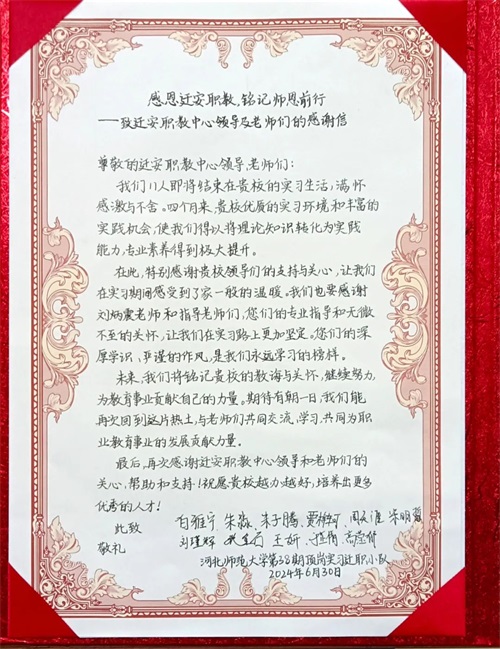 感恩迁安职教,铭记师恩前行
——致迁安职教中心领导及老师们的感谢信
尊敬的迁安职教中心领导、老师们:
我们11人即将结束在贵校的实习生活,满怀
感激与不舍。四个月来,贵校优质的实习环境和丰富的
实践机会,使我们得以将理论知识转化为实践
能力,专业素养得到极大提升。
在此,特别感谢贵校领导们的支持与关心,让我们
在实习期间感受到了家一般的温暖。我们也要感谢
刘炳震老师和指导老师们,您们的专业指导和无微
不至的关怀,让我们在实习路上更加坚定。您们的深
厚学识、严谨的作风,是我们永远学习的榜样。
未来,我们将铭记贵校的教诲与关怀,继续努力,
为教育事业贡献自己的力量。期待有朝一日,我们能
再次回到这片热土,与老师们共同交流、学习,共同为职
业教育事业的发展贡献力量。
最后,再次感谢迁安职教中心领导和老师们的
关心、帮助和支持!祝愿贵校越办越好,培养出更多
优秀的人才!
此致 白雅宁 朱淼 朱子腾
敬礼 王妍
河北师范大学第38期顶岗实习迁职小队
2024年6月30日